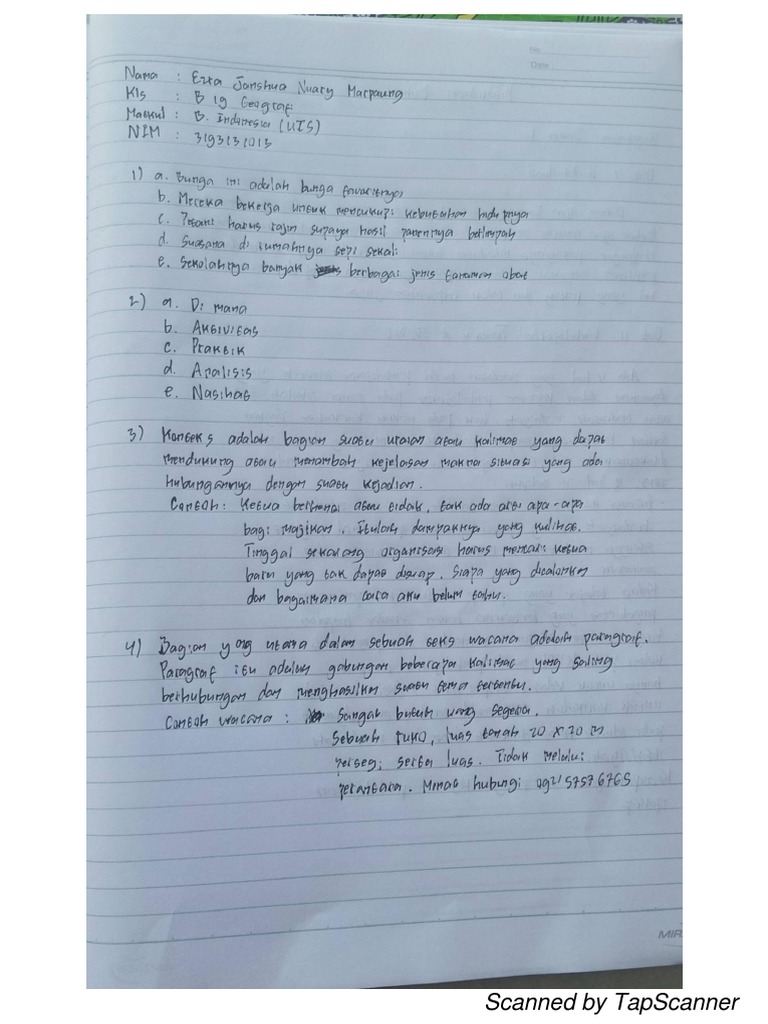 No
Date
Nama : Ezra Janshua Nuary Marpaung
Kls : B 19 Geografi
Matkul : B. Indonesia (UTS)
NIM : 3193131013
1) a. Bunga ini adalah bunga favoritnya
b. Mereka bekerja untuk mencukupi kebutuhan hidupnya
c. Petani harus rajin supaya hasil panennya berlimpah
d. Suasana di rumahnya sepi sekali
e. Sekolahnya banyak berbagai jenis tanaman obat
2) a. Di mana
b. Aktivitas
c. Praktik
d. Analisis
e. Nasihat
3) Konteks adalah bagian suatu uraian atau kalimat yang dapat
mendukung atau menambah kejelasan makna situasi yang ada
hubungannya dengan suatu kejadian.
Contoh: Ketua berhenti atau tidak, tak ada arti apa-apa
bagi majikan. Itulah dampaknya yang kulihat.
Tinggal sekarang organisasi harus mencari ketua
baru yang tak dapat disuap. Siapa yang dicalonkan
dan bagaimana cara aku belum tahu.
4) Bagian yang utama dalam sebuah teks wacana adalah paragraf.
Paragraf itu adalah gabungan beberapa kalimat yang saling
berhubungan dan menghasilkn suatu tema tertentu.
Contoh wacana : Sangat butuh uang segera.
Sebuah ruko, luas tanah 20 x 20 m
persegi serta luas. Tidak melalui
perantara. Minat hubungi 0921 57576765
Scanned by TapScanner